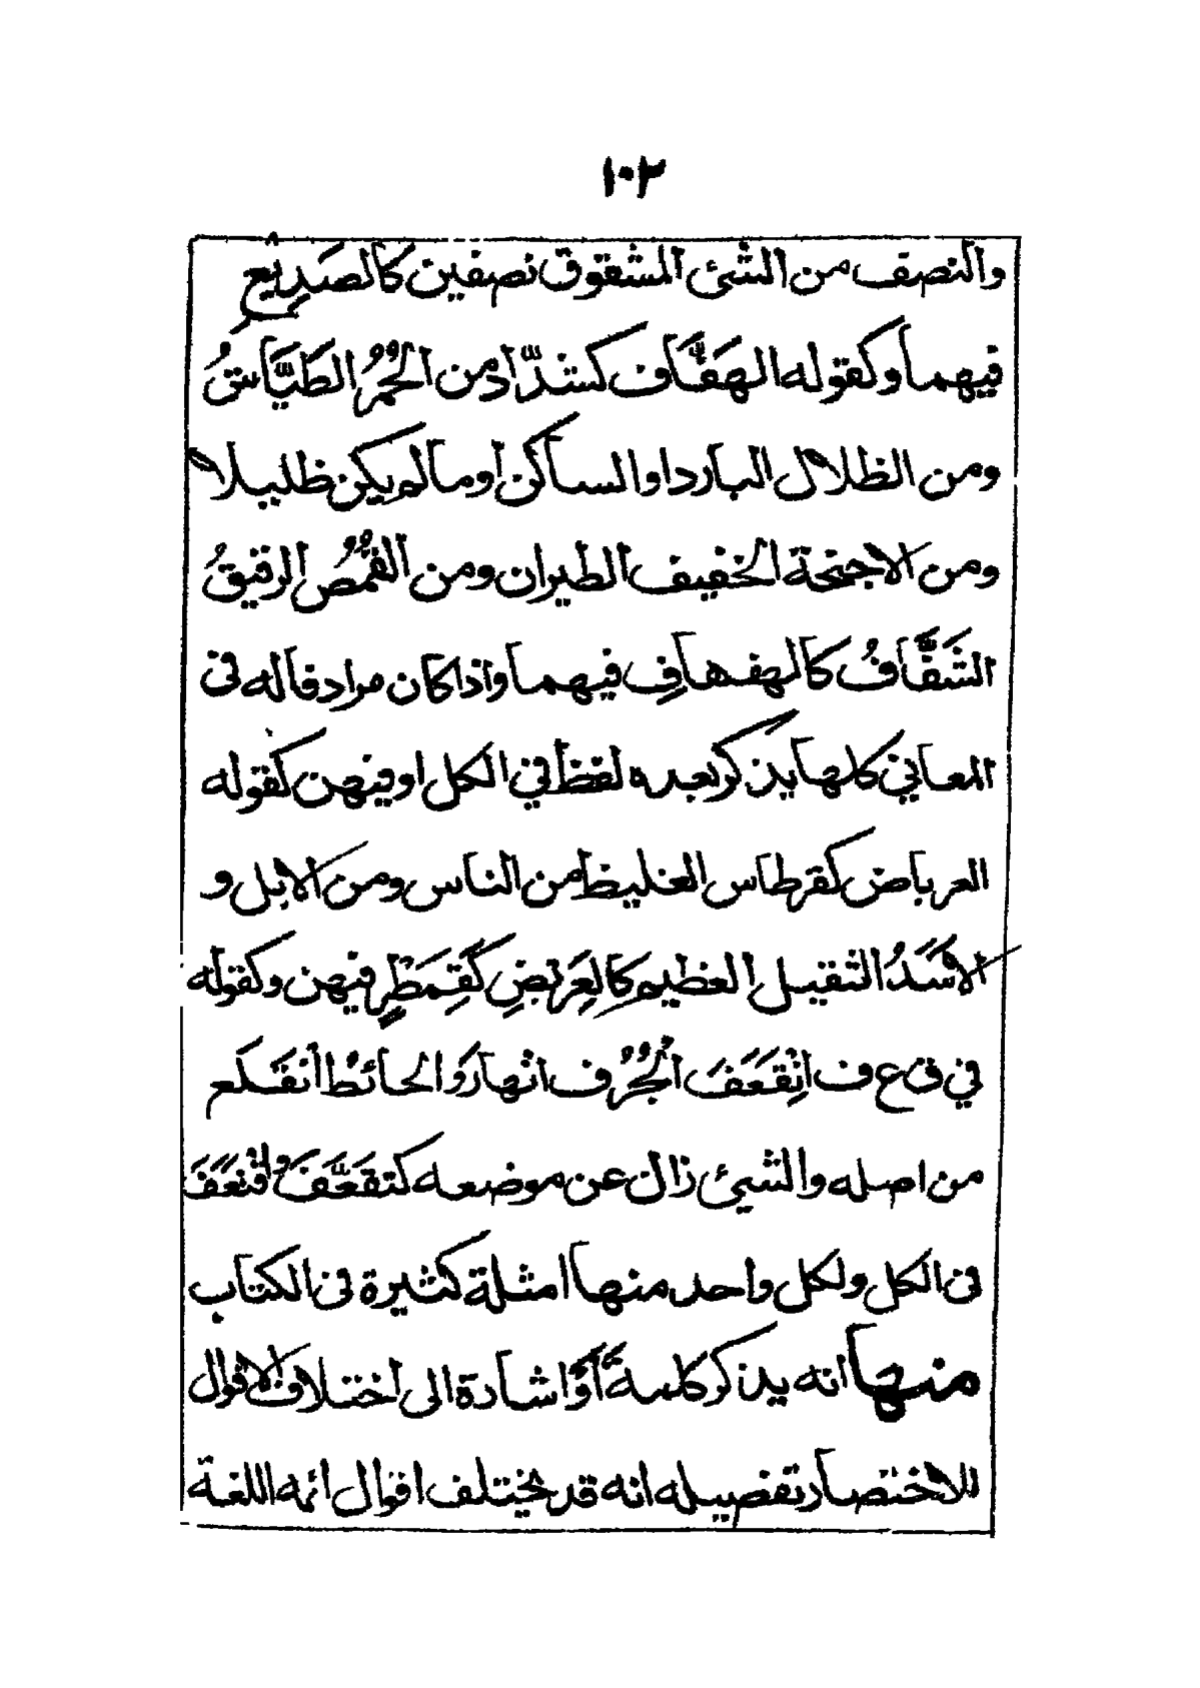 ١٠٣
والنصف من الشئ المشقوق نصفين كالصَدِيْعِ
فيهما وكقوله الهَفَّاف كشدّاد من الحُمُرِ الطَيَّاشُ
ومن الظلال البارد او الساكن أوما لم يكن ظليلا
ومن الاجنحة الخفيف الطيران ومن القُمُصِ الرقيقُ
الشَفَّافُ كالهفهافِ فيهما واذا كان مراد قاله فى
المعاني كلها يذكر بعده لفظ في الكل او فيهن كقوله
العرباض كقرطاس الغليظ من الناس ومن الابل و
الاَسَدُ الثقيل العظيم كالعِرَبْضِ كَقِمَطْرٍ فيهن وكقوله
في ق ع ف انْقَعَفَ الجُرُف انهار والحائط انقلع
من اصله والشيئ زال عن موضعه كتقعَّفَ واقْتَعَفَ
فى الكل ولكل واحد منها امثلة كثيرة فى الكتاب
منها انه يذكر كلمةَ أوْ اشارة الى اختلاف الاقوال
للاختصار تفصيله انه قد يختلف اقوال ائمه اللغة